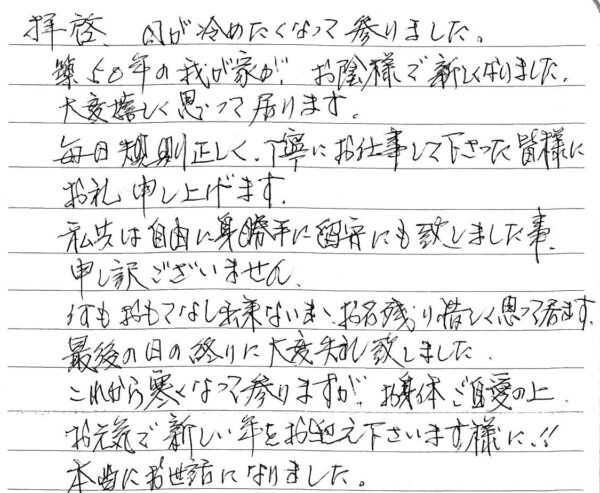 拝啓、風が冷めたくなって参りました。
築50年の我が家が、お陰様で新しくなりました。
大変嬉しく思って居ります。
毎日規則正しく、丁寧にお仕事して下さった皆様に
お礼申し上げます。
私共は自由に身勝手に留守にも致しました事、
申し訳ございません。
何もおもてなし出来ないまゝ、お名残り惜しく思って居ます。
最後の日の終りに大変失礼致しました。
これから寒くなって参りますが、お身体ご自愛の上、
お元気で新しい年をお迎え下さいます様に、!!
本当にお世話になりました。